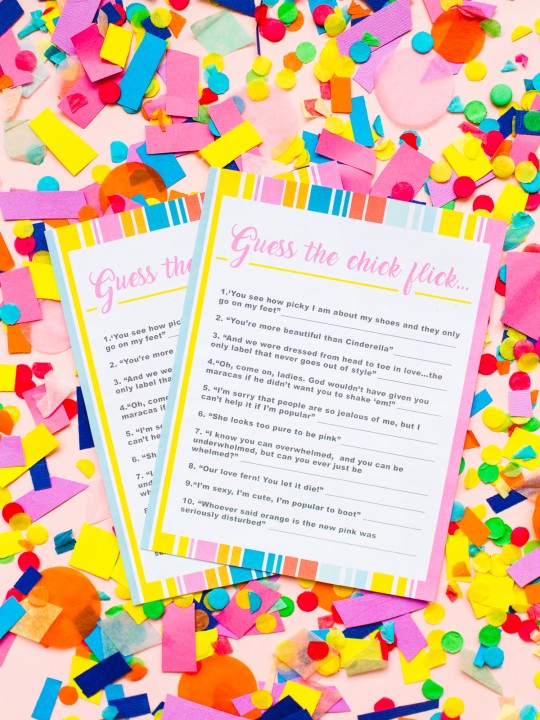 Guess the chick flick...
1.'You see how picky I am about my shoes and they only
go on my feet"
2. "You're more beautiful than Cinderella"
3. "And we were dressed from head to toe in love...the
only label that never goes out of style"
4."Oh, come on, ladies. God wouldn't have given you
maracas if he didn't want you to shake 'em!"
5. "I'm sorry that people are so jealous of me, but I
can't help it if I'm popular"
6. "She looks too pure to be pink"
7. "I know you can overwhelmed, and you can be
underwhelmed, but can you ever just be
whelmed?"
8. "Our love fern! You let it die!"
9."I'm sexy, I'm cute, I'm popular to boot"
10. "Whoever said orange is the new pink was
seriously disturbed"
Guess the
1.'You see how pick
go on my feet"
2. "You're more
3. "And we w
only label tha
4."Oh, come
maracas if
5. "I'm so
can't he
6. "Sh
7. "I
und
wh
8